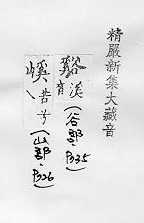 精嚴新集大藏音
谿溪
(谷部·P335)
嵠苦兮
(山部·P326)